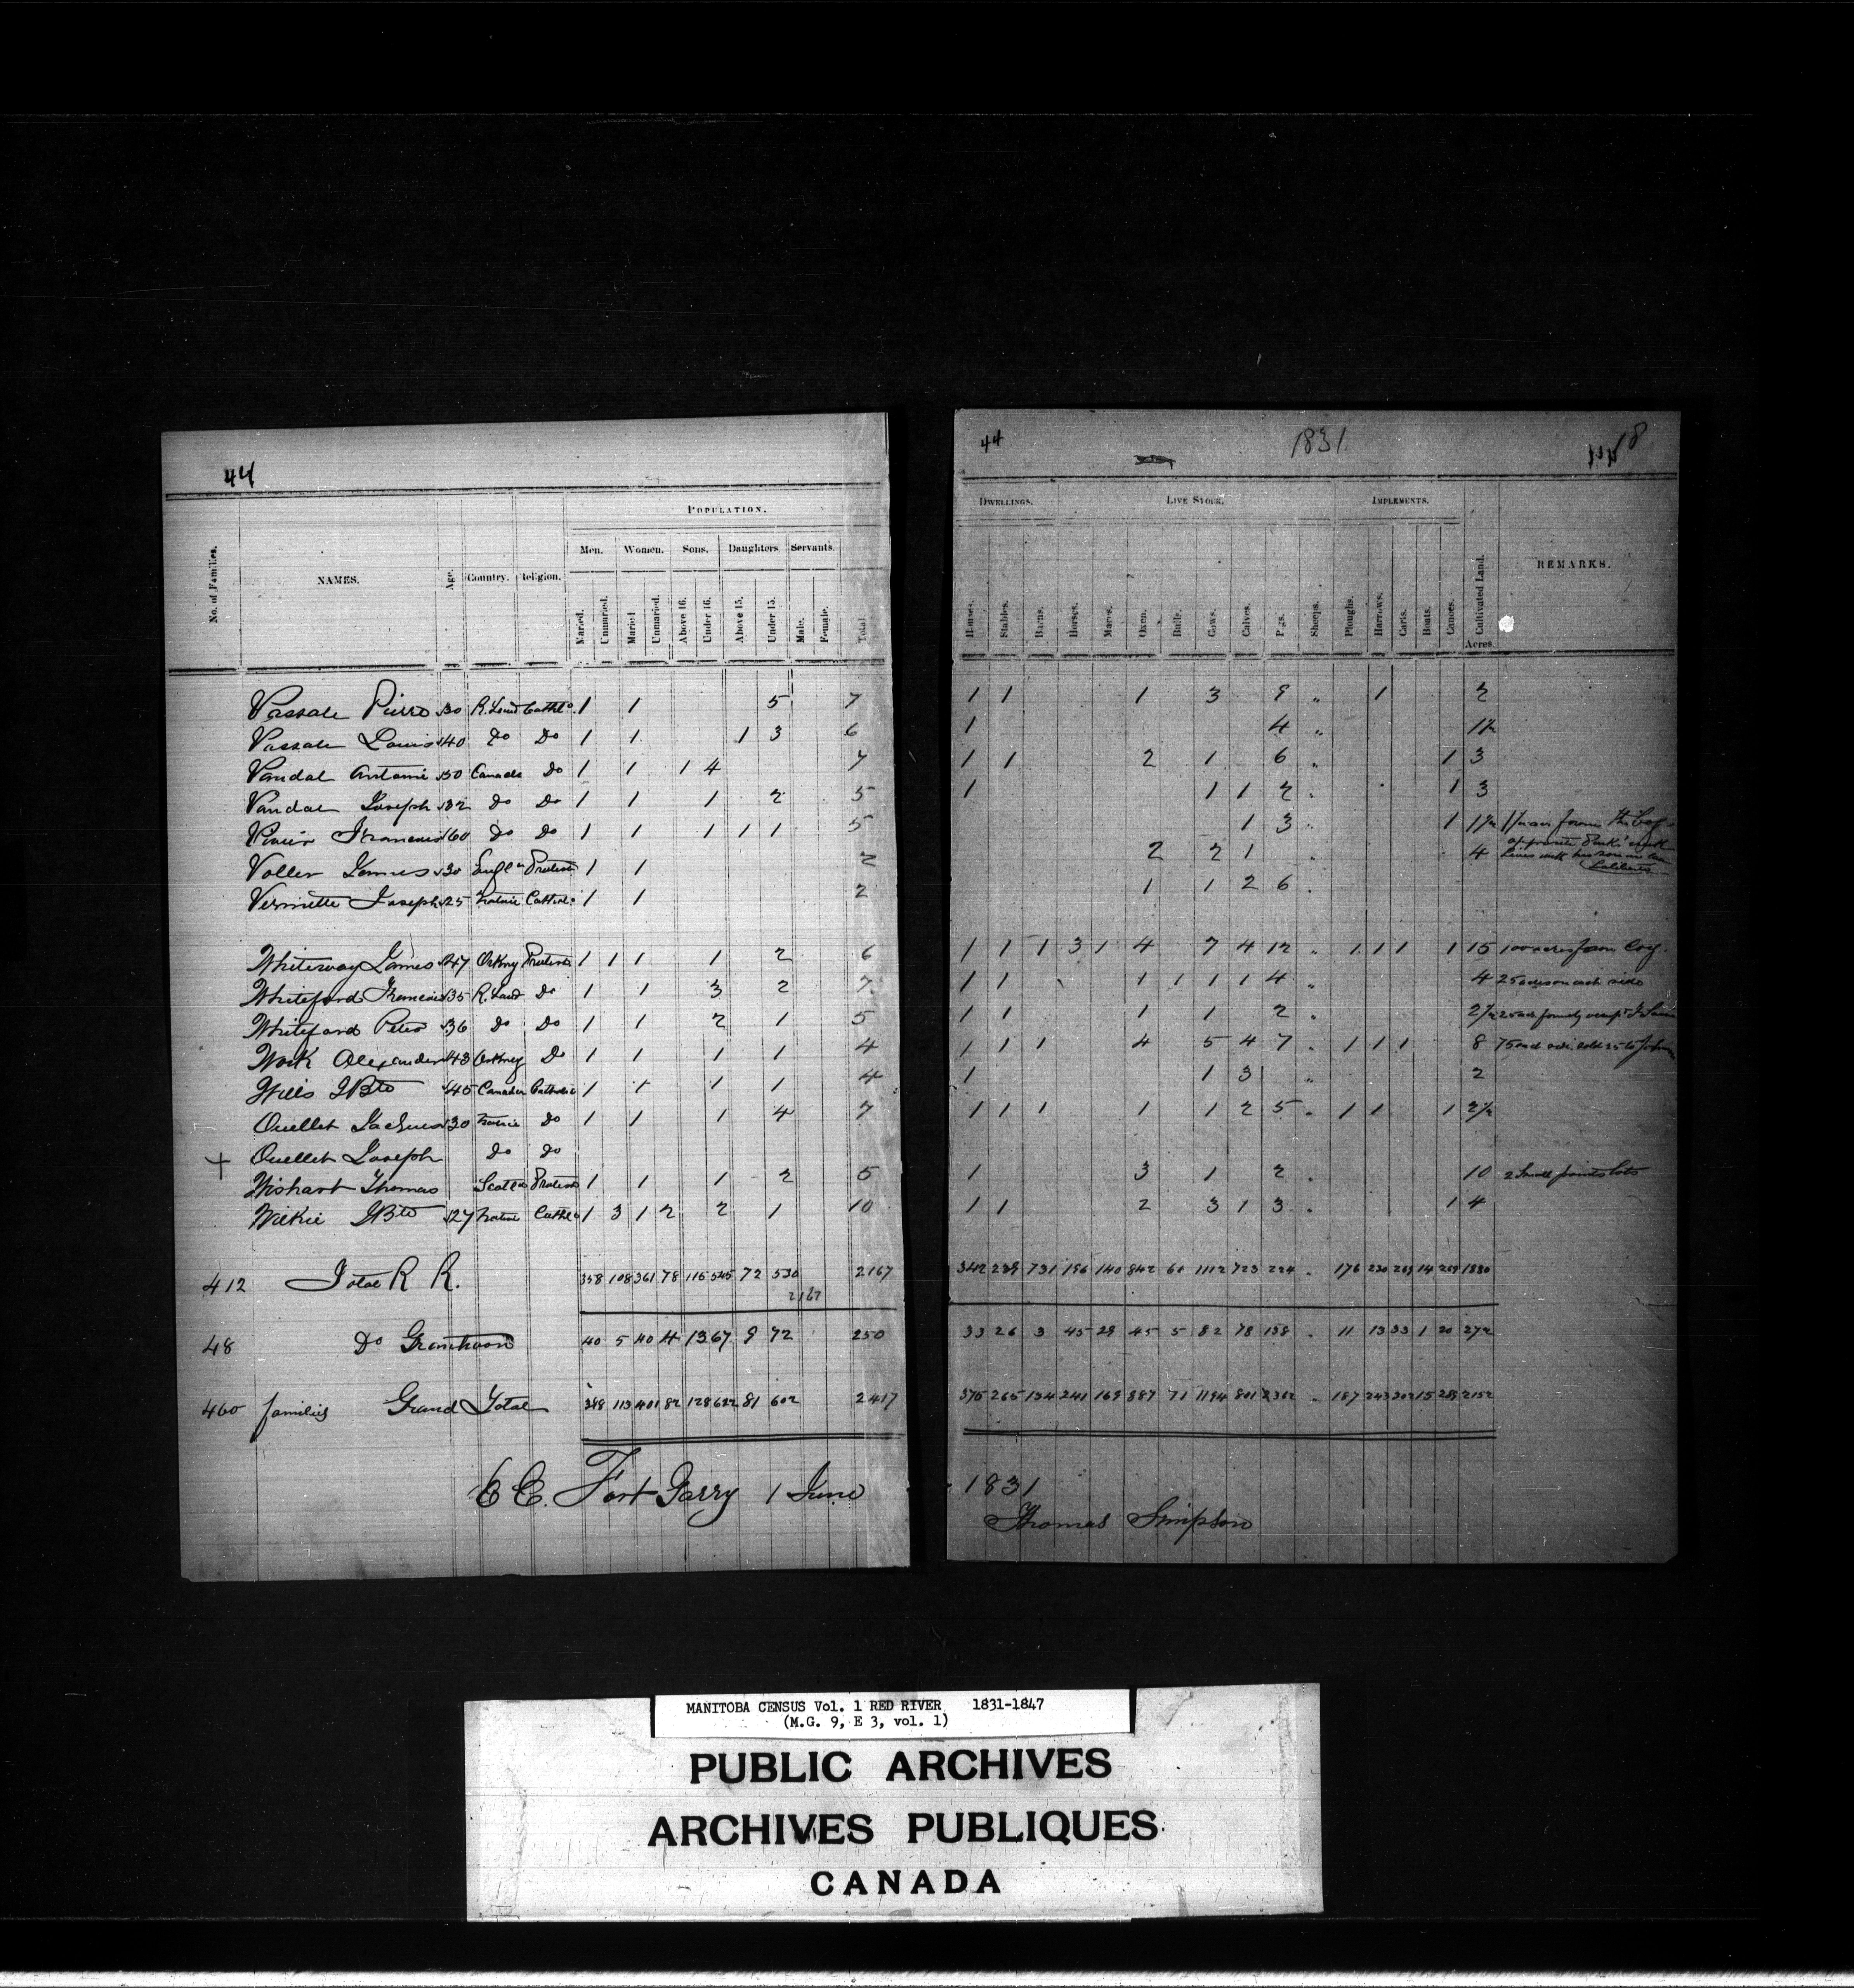 44
No. of Families.
NAMES.
Age.
Country.
Religion.
POPULATION.
Men. Women. Sons. Daughters. Servants.
Maried. Unmaried. Maried Unmaried. Above 16. Under 16. Above 15. Under 15. Male. Female. Total
Pierre 30 R. Land Cathlo. 1 1 5 7
Louis 40 Do Do 1 1 1 3 6
Vandal Antoine 50 Canada Do 1 1 1 4 7
Vandal Joseph 32 Do Do 1 1 1 2 5
Francois 60 Do Do 1 1 1 1 1 5
Voller James 30 1 1 2
Vermette Joseph 25 Native Cathol 1 1 2
Whiteway James 47 Orkney Protest 1 1 1 1 2 6
Whiteford Francois 35 R. Land Do 1 1 3 2 7
Whiteford Peter 36 Do Do 1 1 2 1 5
Work Alexander 43 Orkney Do 1 1 1 1 4
Wills JBte 45 Canada Catholic 1 1 1 1 4
Ouellet 30 Native Do 1 1 1 4 7
+ Ouellet Joseph Do Do
Wishart Thomas Protest 1 1 1 2 5
Wilkie JBte 27 Native Cathl 1 3 1 2 2 1 10
412 Total R R. 358 108 361 78 115 545 72 530 2167
2167
48 Do Grantown 40 5 40 4 13 67 9 72 250
460 families Grand Total 113 401 82 128 81 602 2417
Fort Garry 1 June
44 1831. 18
DWELLINGS. LIVE STOCK. IMPLEMENTS.
Cultivated Land.
REMARKS.
Houses. Stables. Barns. Horses. Mares. Oxen. Bulls. Cows. Calves. Pigs. Sheeps. Ploughs. Harrows. Carts. Boats. Canoes. Acres
1 1 1 3 9 „ 1 2
1 4 „ 1½
1 1 2 1 6 „ 1 3
1 1 1 2 1 3
1 3 1 1½
2 2 1 4
1 1 2 6
1 1 1 3 1 4 7 4 12 „ 1 1 1 1 15 100 acres from Coy.
1 1 1 1 1 1 4 „ 4 25 acres on each side
1 1 1 1 2 2½
1 1 1 4 5 4 7 1 1 1 8
1 1 3 „ 2
1 1 1 1 1 2 5 1 1 1 2½
1 3 1 2 10 2 Small points lots
1 1 2 3 1 3 1 4
342 239 731 196 140 842 1112 723 176 230 14 1880
33 26 3 45 29 45 5 82 78 138 11 13 33 1 20 272
375 265 134 241 169 887 71 1194 801 187 243 15 289 2152
1831
Thomas Simpson
MANITOBA CENSUS Vol. 1 RED RIVER 1831-1847
(M.G. 9, E 3, vol. 1)
PUBLIC ARCHIVES
ARCHIVES PUBLIQUES
CANADA